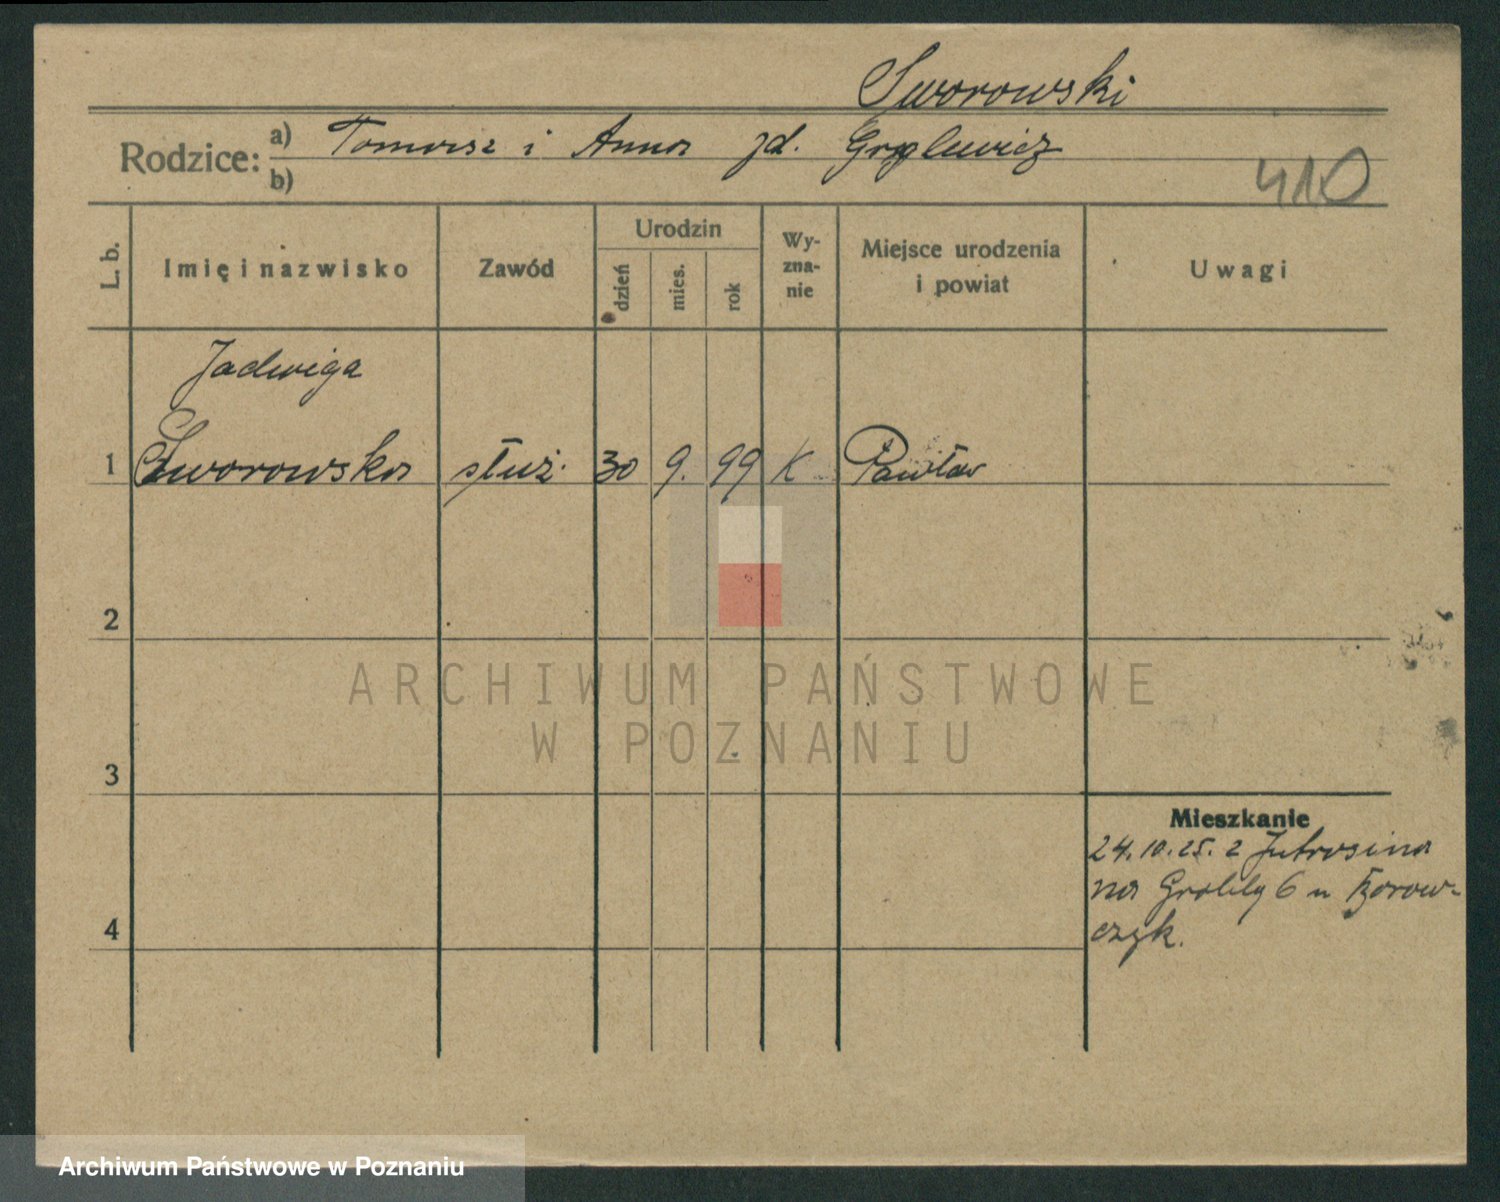 Sworowski
Rodzice: a) Tomasz i Anna zd. Grylewicz
b)
410
L. b. Imię i nazwisko Zawód Urodzin dzień mies. rok Wyznanie Miejsce urodzenia i powiat Uwagi
Jadwiga
1 Sworowska służ. 30 9. 99 K Pawław
2
ARCHIWUM PAŃSTWOWE
W POZNANIU
3
Mieszkanie
24.10.25. z Jutrosina
na Grobly 6 u Borow-
4
czyk.
Archiwum Państwowe w Poznaniu